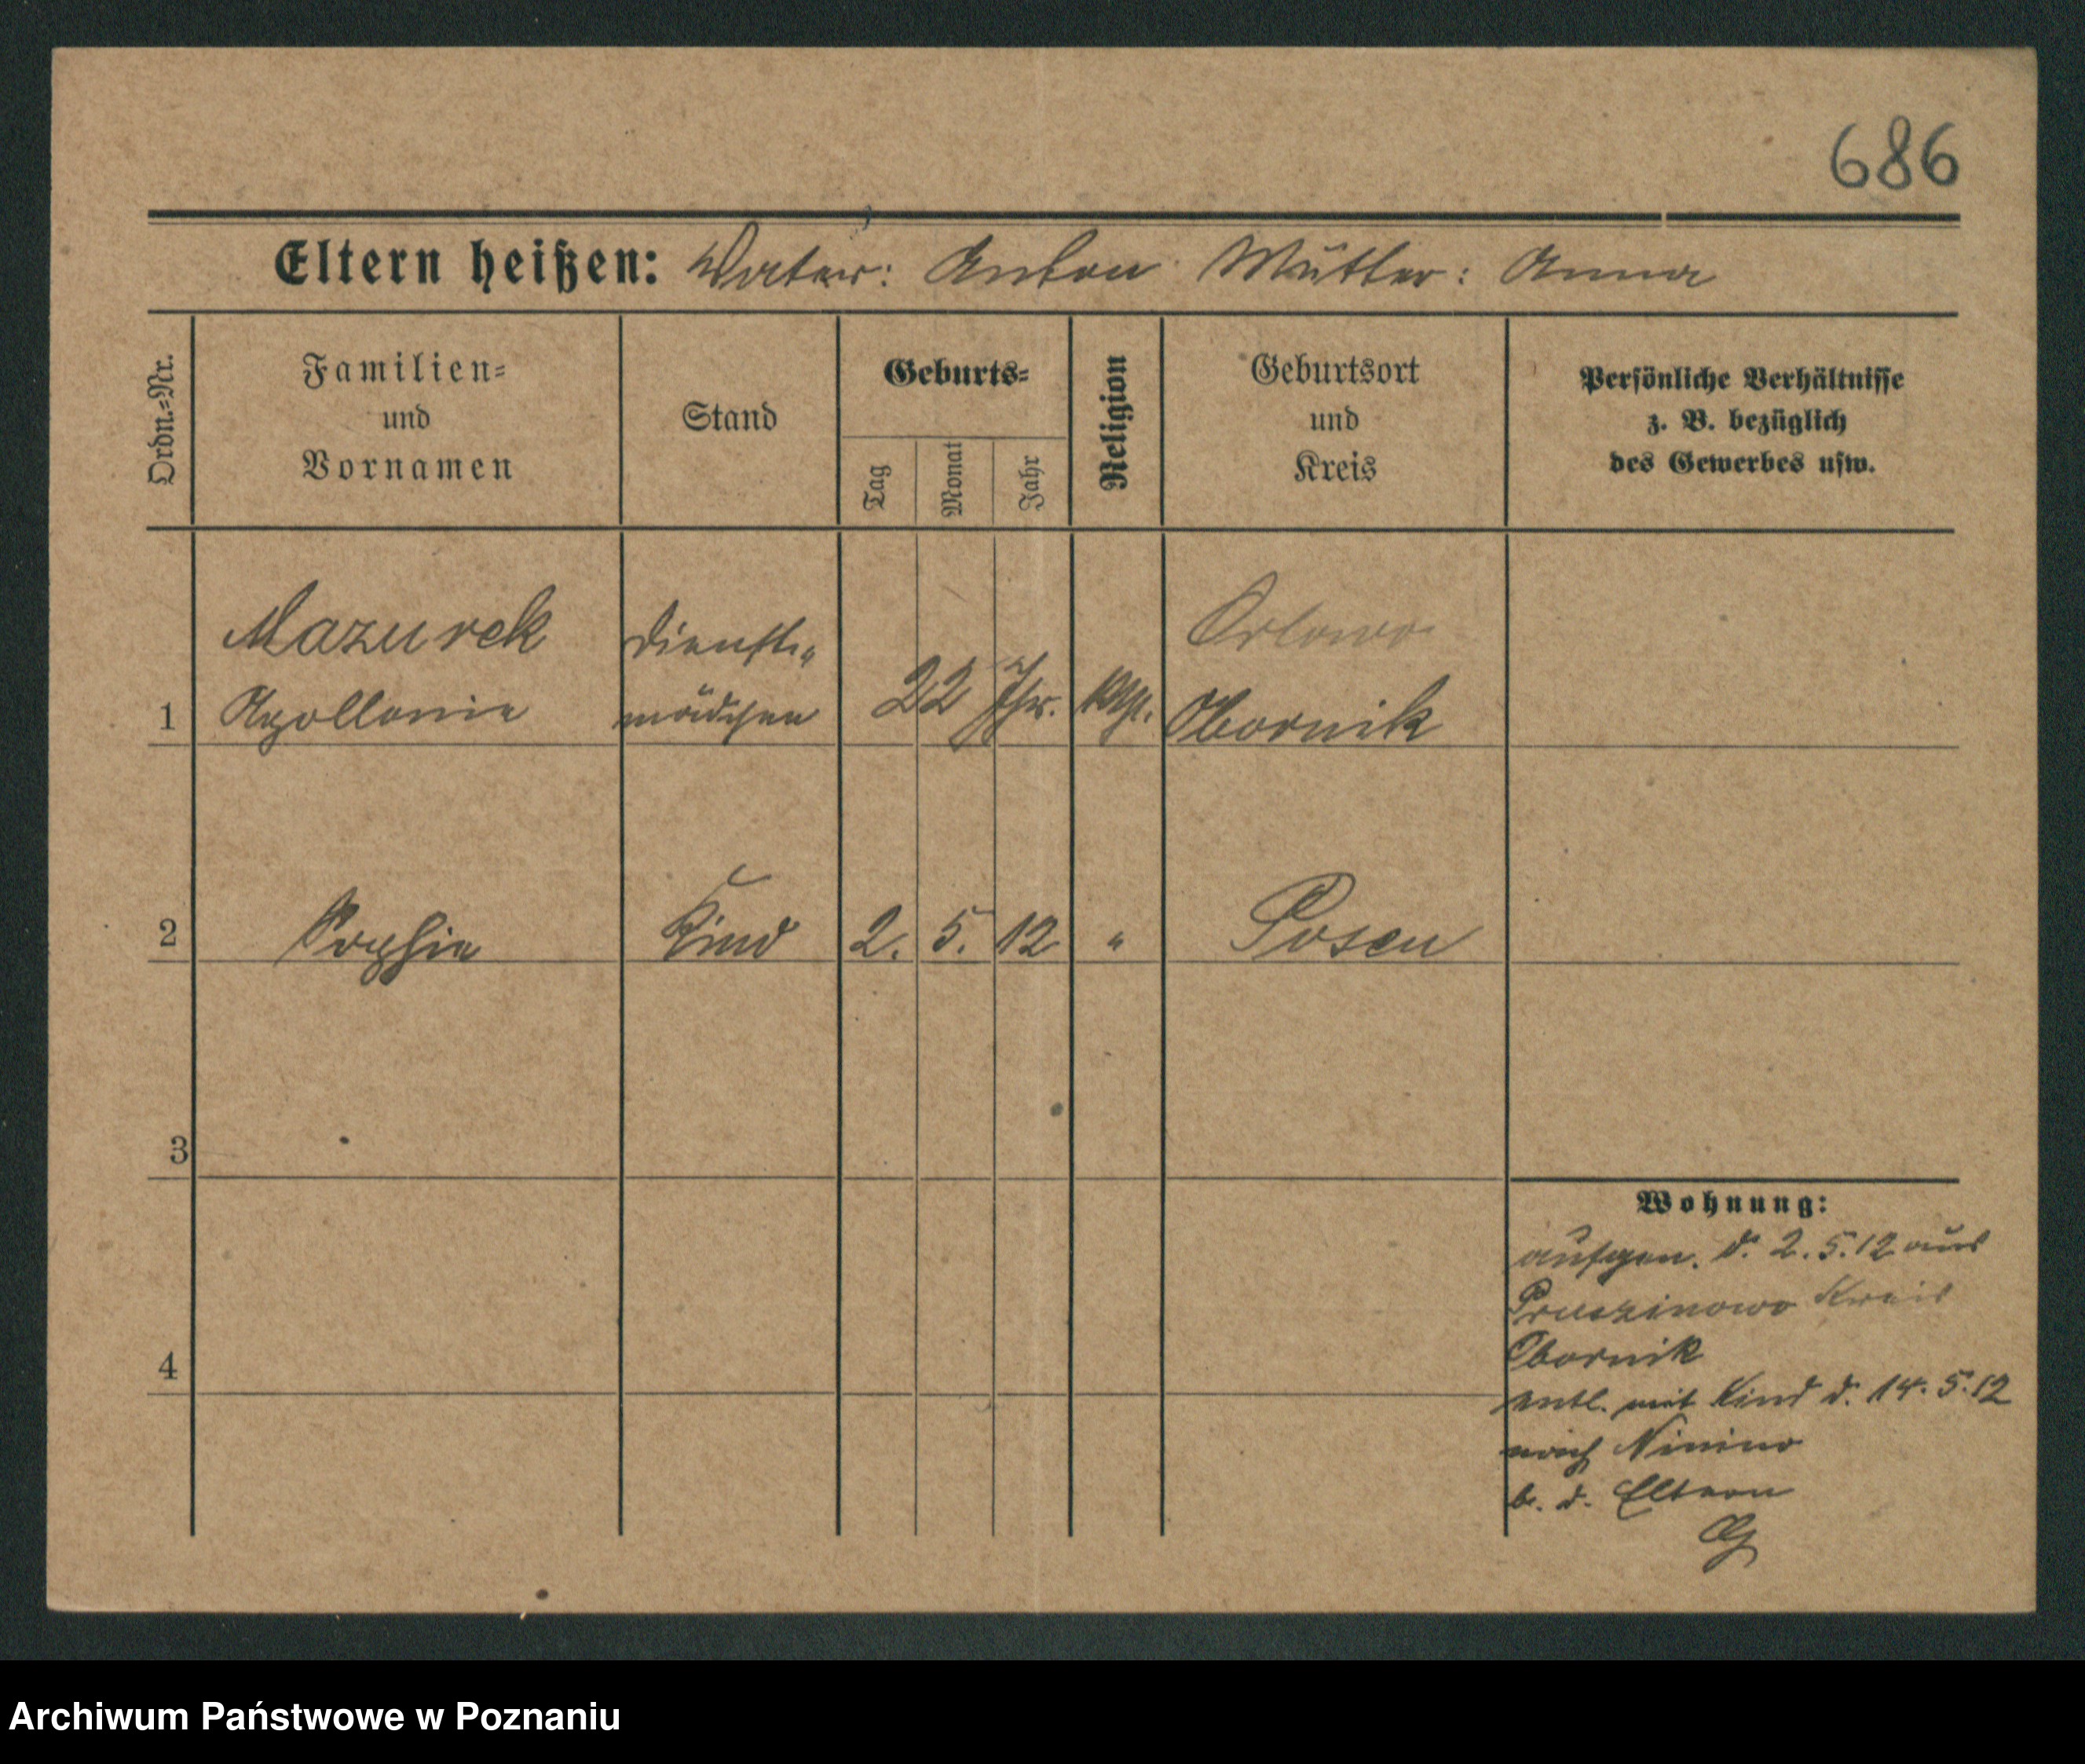 686
Eltern heißen: Vater: Anton Mutter: Anna
Ordn.=Nr.
Familien=
und
Vornamen
Stand
Geburts=
Tag
Monat
Jahr
Religion
Geburtsort
und
Kreis
Persönliche Verhältnisse
z. B. bezüglich
des Gewerbes usw.
1
Mazurek
Apollonia
Dienst„
mädchen
22 Jhr.
kath.
Orlowo
Obornik
2
Sophie
Kind
2.
5.
12
"
Posen
3
4
Wohnung:
aufgen. d. 2. 5. 12 aus
Pruszinowo Kreis
Obornik
entl. mit Kind d. 14. 5. 12
nach Ninino
b. d. Eltern
Archiwum Państwowe w Poznaniu